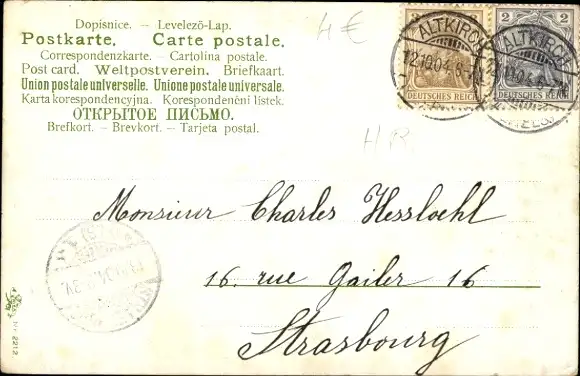 Dopisnice. — Levelező-Lap.
Postkarte. Carte postale.
Correspondenzkarte. — Cartolina postale.
Post card. Weltpostverein. Briefkaart.
Union postale universelle. Unione postale universale.
Karta korespondencyjna. Korespondenční lístek.
ОТКРЫТОЕ ПИСЬМО.
Brefkort. — Brevkort. — Tarjeta postal.
4€
H R.
3
2
DEUTSCHES REICH
DEUTSCHES REICH
ALTKIRCH
12.10.04.
ALTKIRCH
Monsieur Charles Hessloehl
16. rue Gailer 16
Strasbourg
Nr. 2212